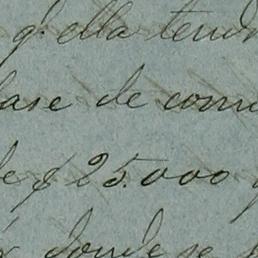 q. ella tend
base de com
de $25.000 q
donde se